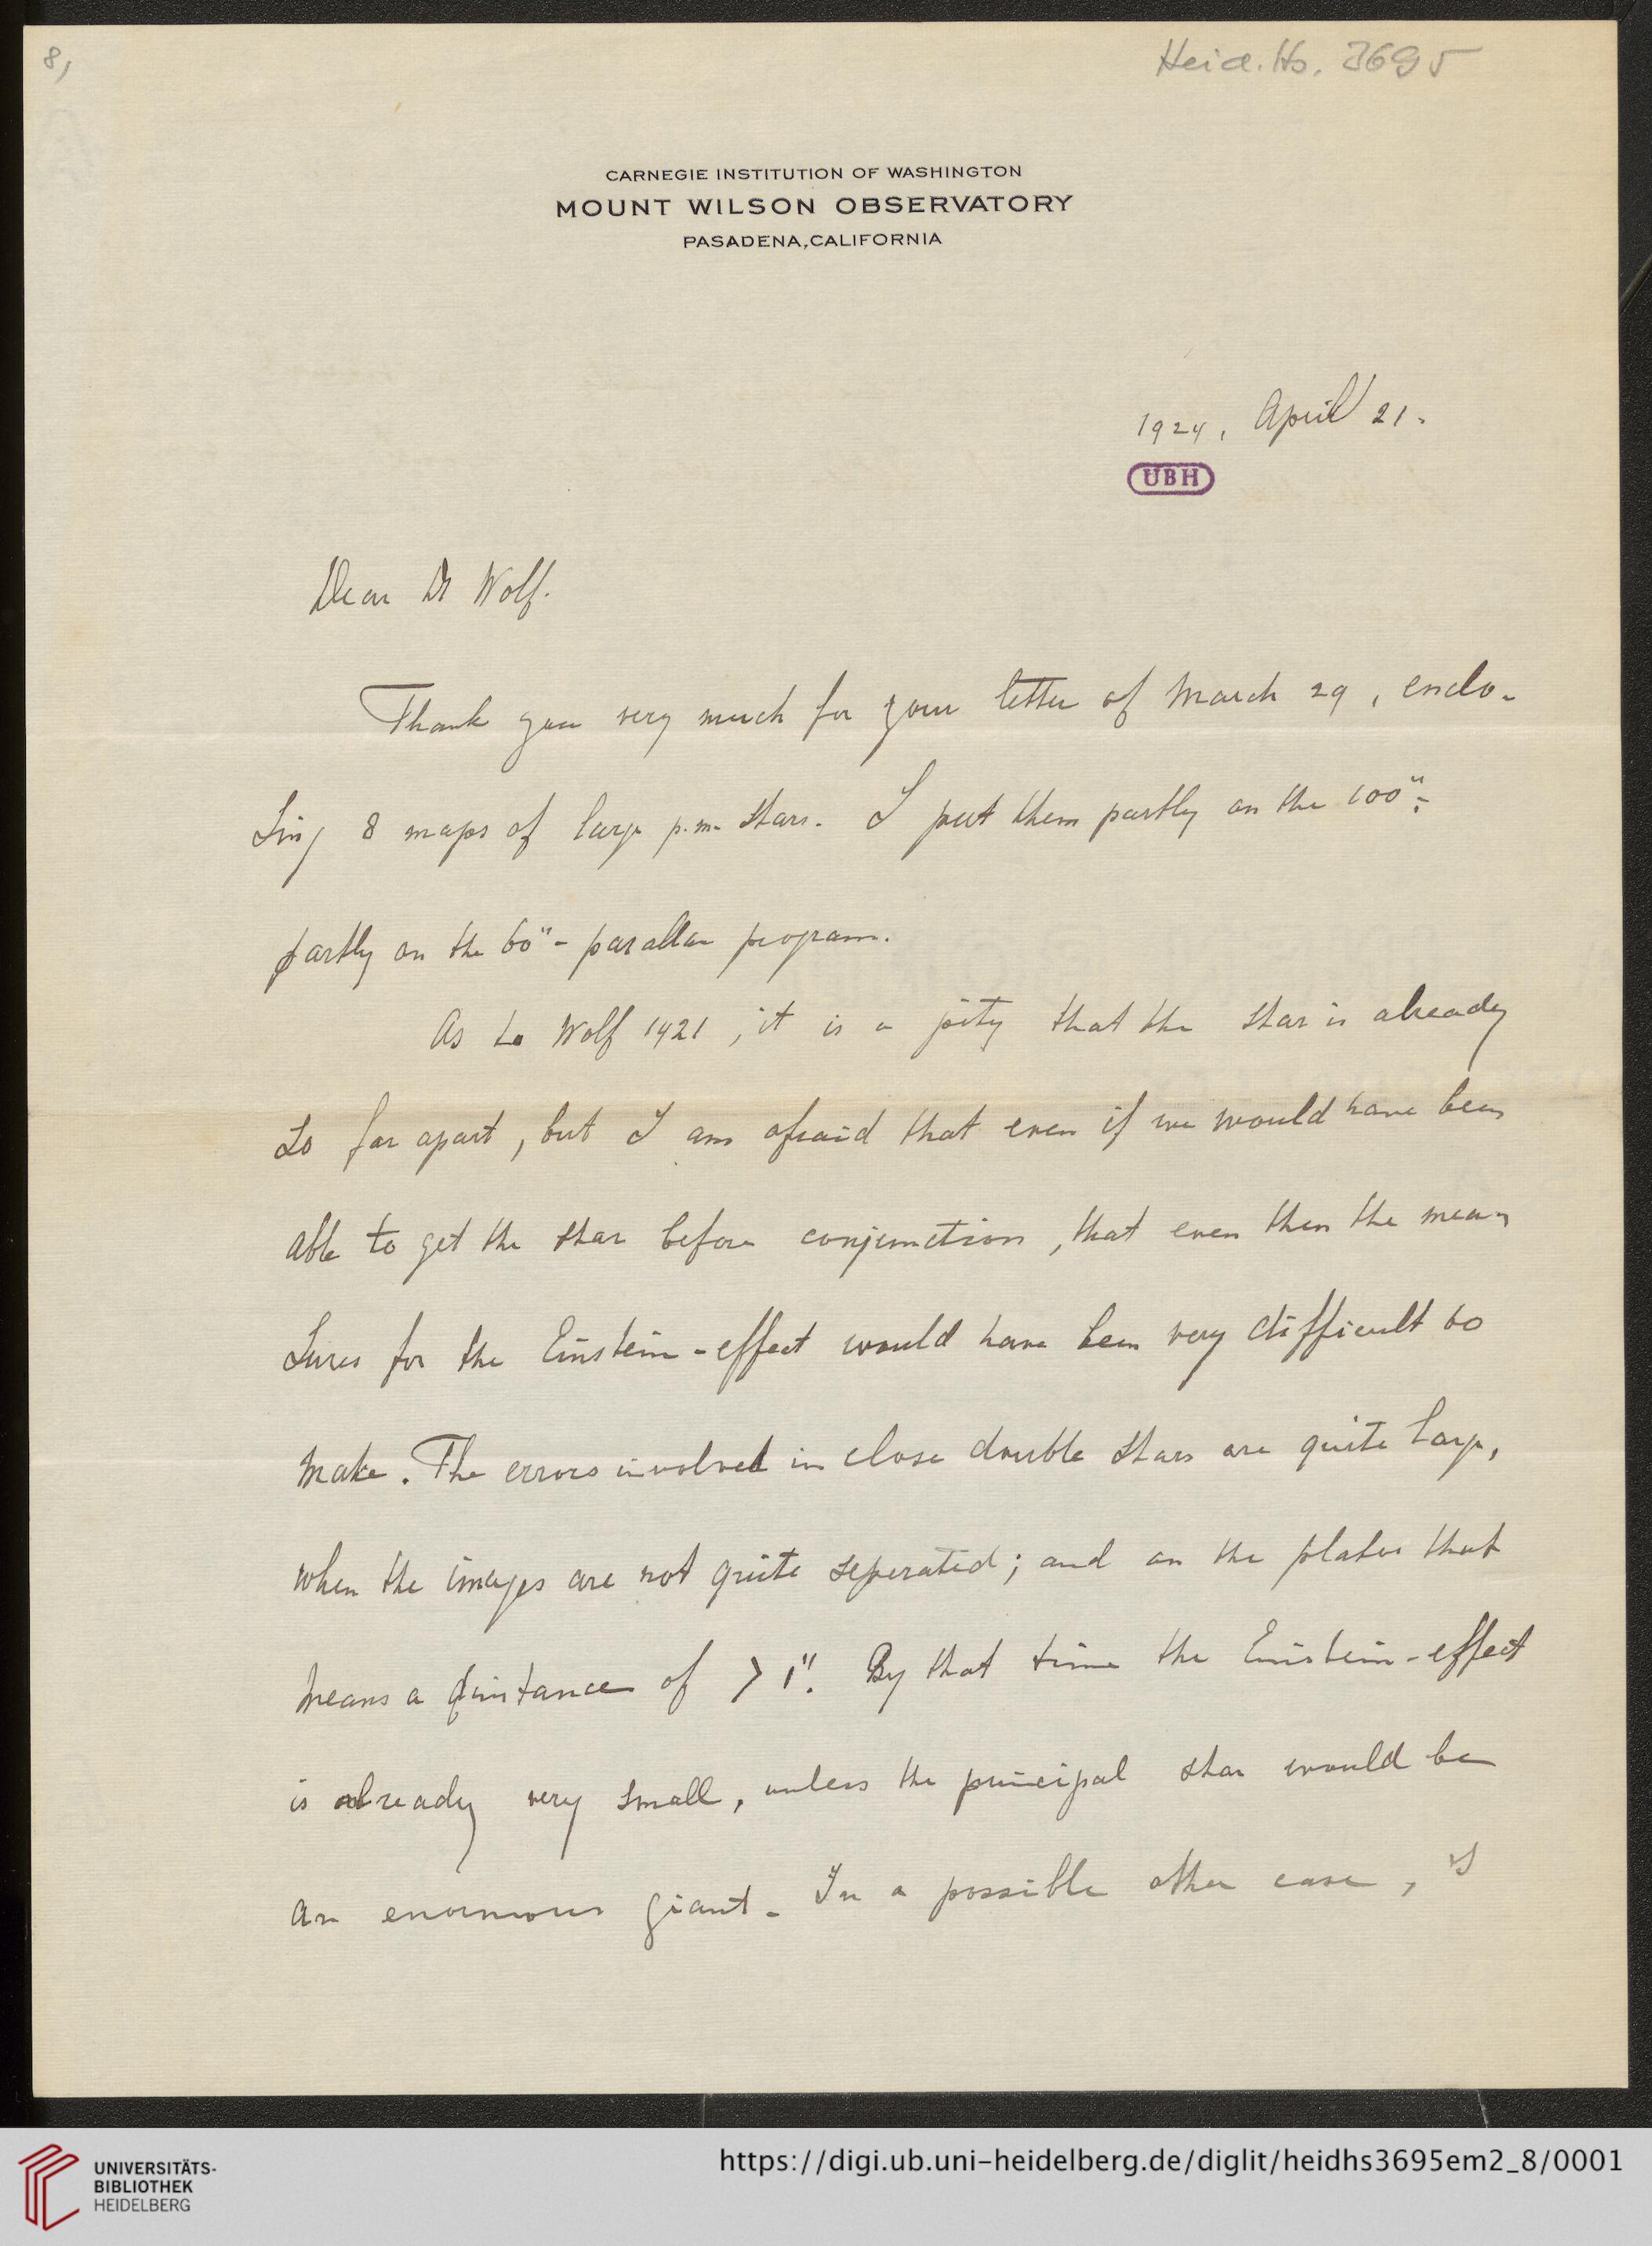 8,
Heid. Hs. 3695
CARNEGIE INSTITUTION OF WASHINGTON
MOUNT WILSON OBSERVATORY
PASADENA, CALIFORNIA
1924, April 21.
UBH
Dear Dr Wolf.
Thank you very much for your letter of March 29, enclo-
sing 8 maps of large p.m. stars. I put them partly on the 100"-
partly on the 60"- parallax program.
As to Wolf 1421, it is a pity that the star is already
so far apart, but I am afraid that even if we would have been
able to get the star before conjunction, that even then the mea-
sures for the Einstein-effect would have been very difficult to
make. The errors involved in close double stars are quite large,
when the images are not quite seperated; and on the plates that
means a distance of > 1". By that time the Einstein-effect
is already very small, unless the principal star would be
an enormous giant. In a possible other case, if
UNIVERSITÄTS-
BIBLIOTHEK
HEIDELBERG
https://digi.ub.uni-heidelberg.de/diglit/heidhs3695em2_8/0001